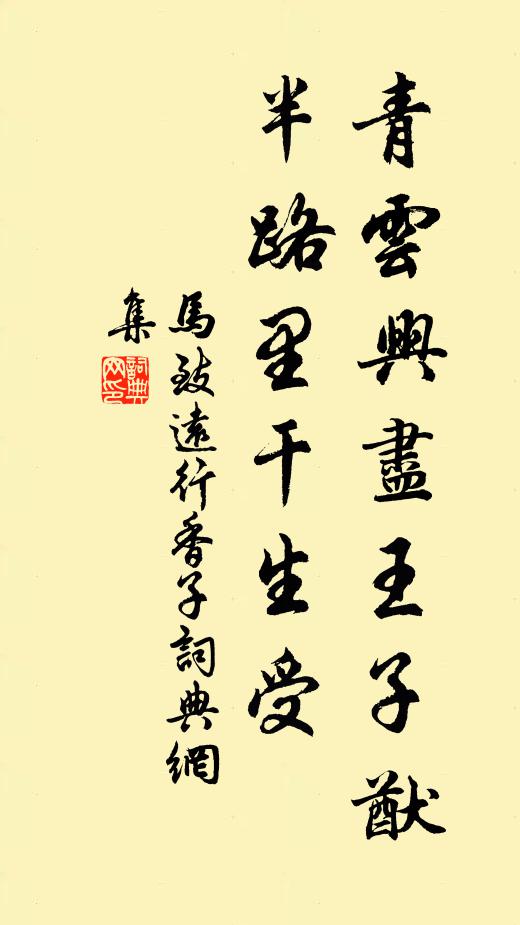 青雲興盡王子猷
半路里干生受
馬致遠行香子詞典網
集
詞典
网印